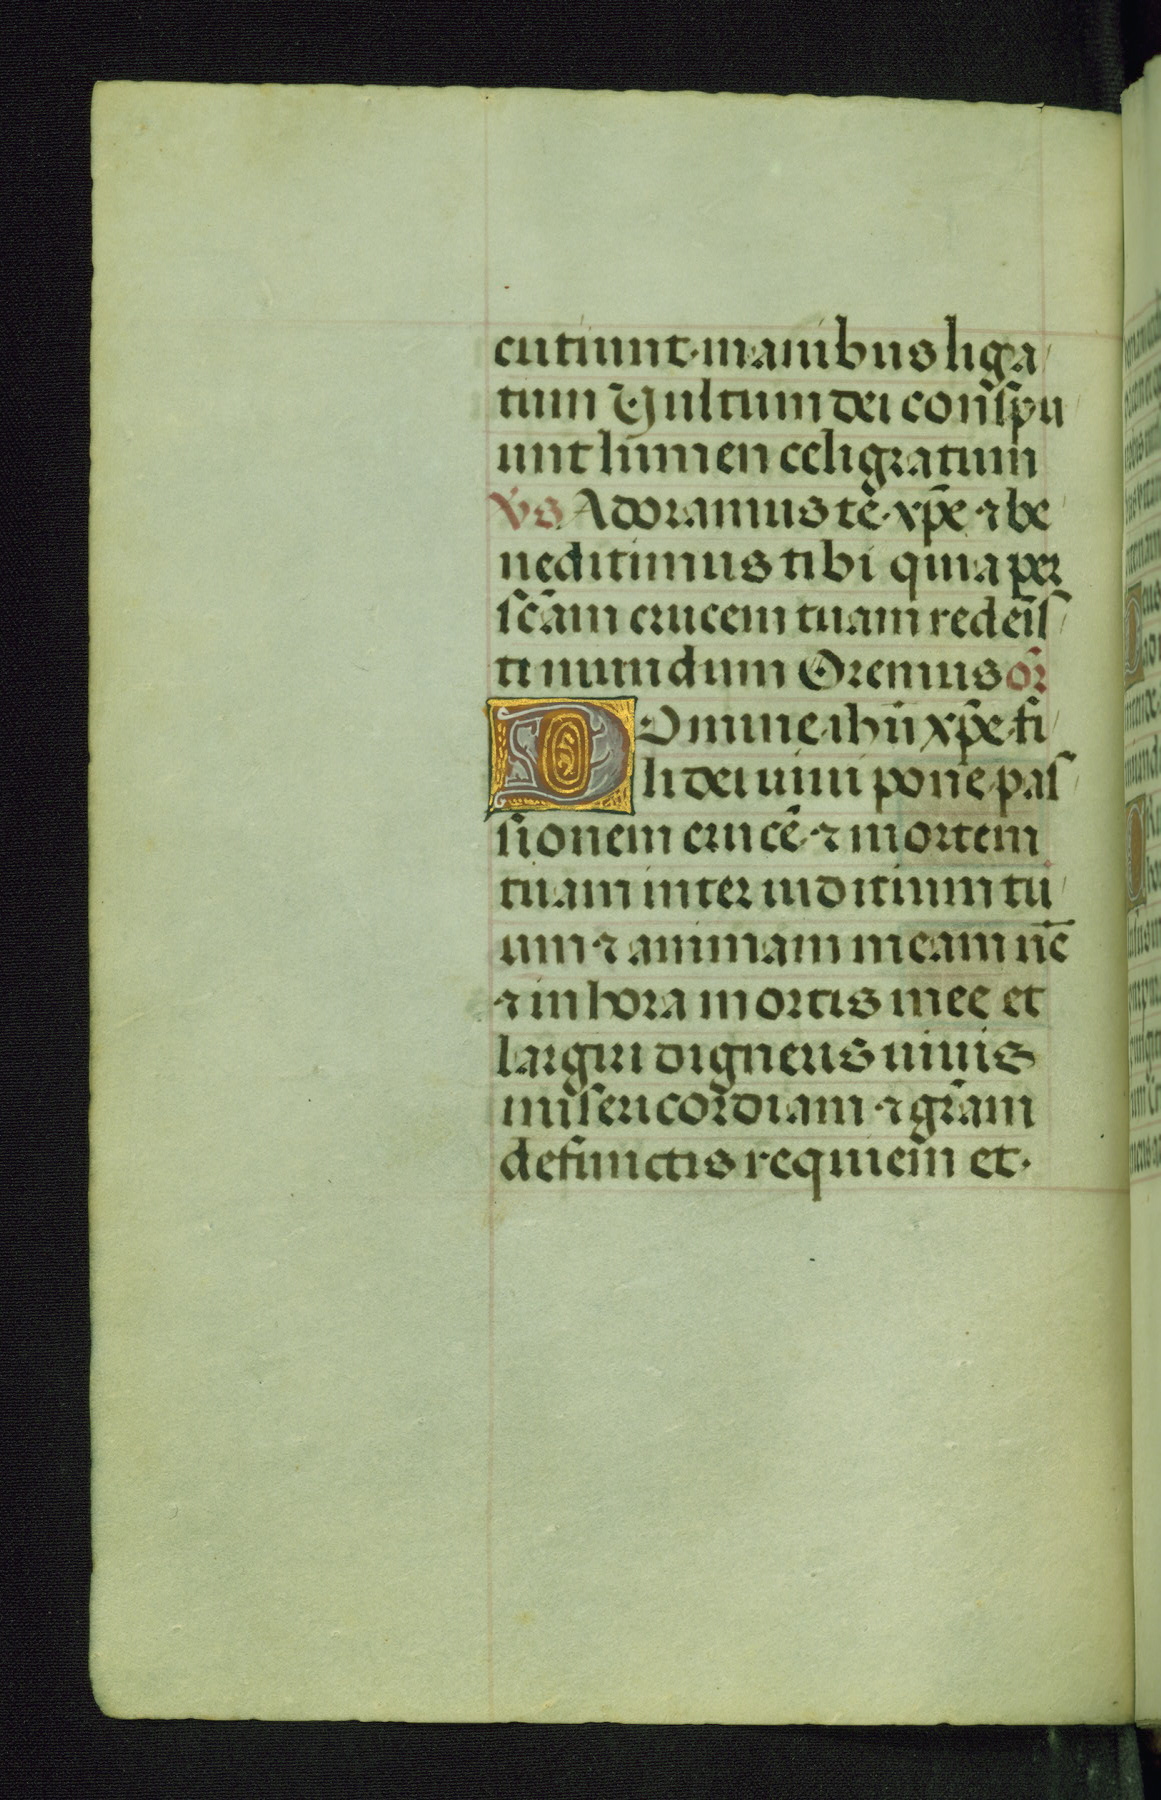 cutiunt·manibus liga
tum Vultum dei conſpu
unt lumen celi gratum
v̄s Adoramus te·xp̄e ⁊ be
neditimus tibi quia per
ſc̄am crucem tuam redeīſ
ti mundum Oremus or̄
Domine ihū xp̄e fi
li dei uiui pone paſ
ſionem crucē ⁊ mortem
tuam inter iuditium tu
um ⁊ animam meam nc̄
⁊ in hora mortis mee et
largiri digneris uiuis
miſericordiam ⁊ gr̄am
defunctis requiem et·